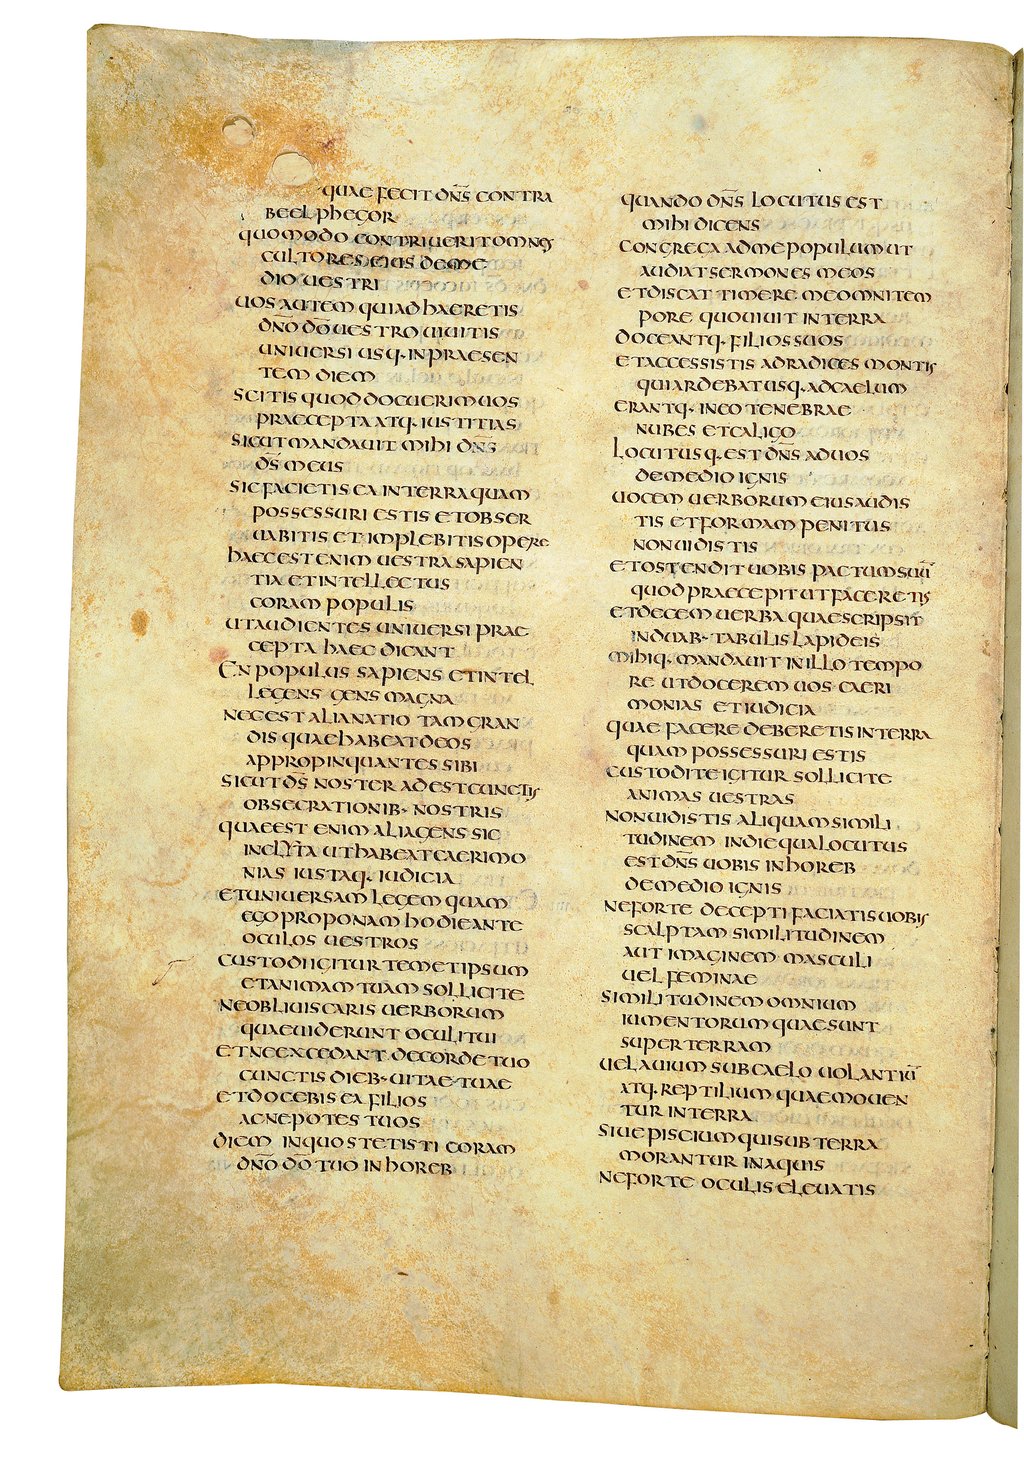 quae fecit dn̄s contra
beelphegor
quomodo contriuerit omnes
cultores eius deme
dio uestri
uos autem qui adhaeretis
dn̄o dō uestro uiuitis
uniuersi usq· in praesen
tem diem
scitis quod docuerim uos
praecepta atq· iustitias
sicut mandauit mihi dn̄s
ds̄ meus
sic facietis ea in terra quam
possessuri estis et obser
uabitis et implebitis opere
haec est enim uestra sapien
tia et intellectus
coram populis
ut audientes uniuersi prae
cepta haec dicant
En populus sapiens et intel
legens gens magna
nec est alia natio tam gran
dis quae habeat deos
appropinquantes sibi
sicut ds̄ noster adest cunctis
obsecrationib· nostris
quae est enim alia gens sic
inclyta ut habeat caerimo
nias iustaq· iudicia
et uniuersam legem quam
ego proponam hodie ante
oculos uestros
custodi igitur temetipsum
et animam tuam sollicite
ne obliuiscaris uerborum
quae uiderunt oculi tui
et ne excedant de corde tuo
cunctis dieb· uitae tuae
et docebis ea filios
ac nepotes tuos
diem in quo stetisti coram
dn̄o dō tuo in horeb
quando dn̄s locutus est
mihi dicens
congrega ad me populum ut
audiat sermones meos
et discat timere me omni tem
pore quo uiuit in terra
doceantq· filios suos
et accessistis ad radices montis
qui ardebat usq· ad caelum
erantq· in eo tenebrae
nubes et caligo
locutusq· est dn̄s ad uos
de medio ignis
uocem uerborum eius audis
tis et formam penitus
non uidistis
et ostendit uobis pactum suū
quod praecepit ut faceretis
et decem uerba quae scripsit
in duab· tabulis lapideis
mihiq· mandauit in illo tempo
re ut docerem uos caeri
monias et iudicia
quae facere deberetis in terra
quam possessuri estis
custodite igitur sollicite
animas uestras
non uidistis aliquam simili
tudinem in die qua locutus
est dn̄s uobis in horeb
de medio ignis
ne forte decepti faciatis uobis
scalptam similitudinem
aut imaginem masculi
uel feminae
similitudinem omnium
iumentorum quae sunt
super terram
uel auium sub caelo uolantiū
atq· reptilium quae mouen
tur in terra
siue piscium qui sub terra
morantur in aquis
ne forte oculis eleuatis